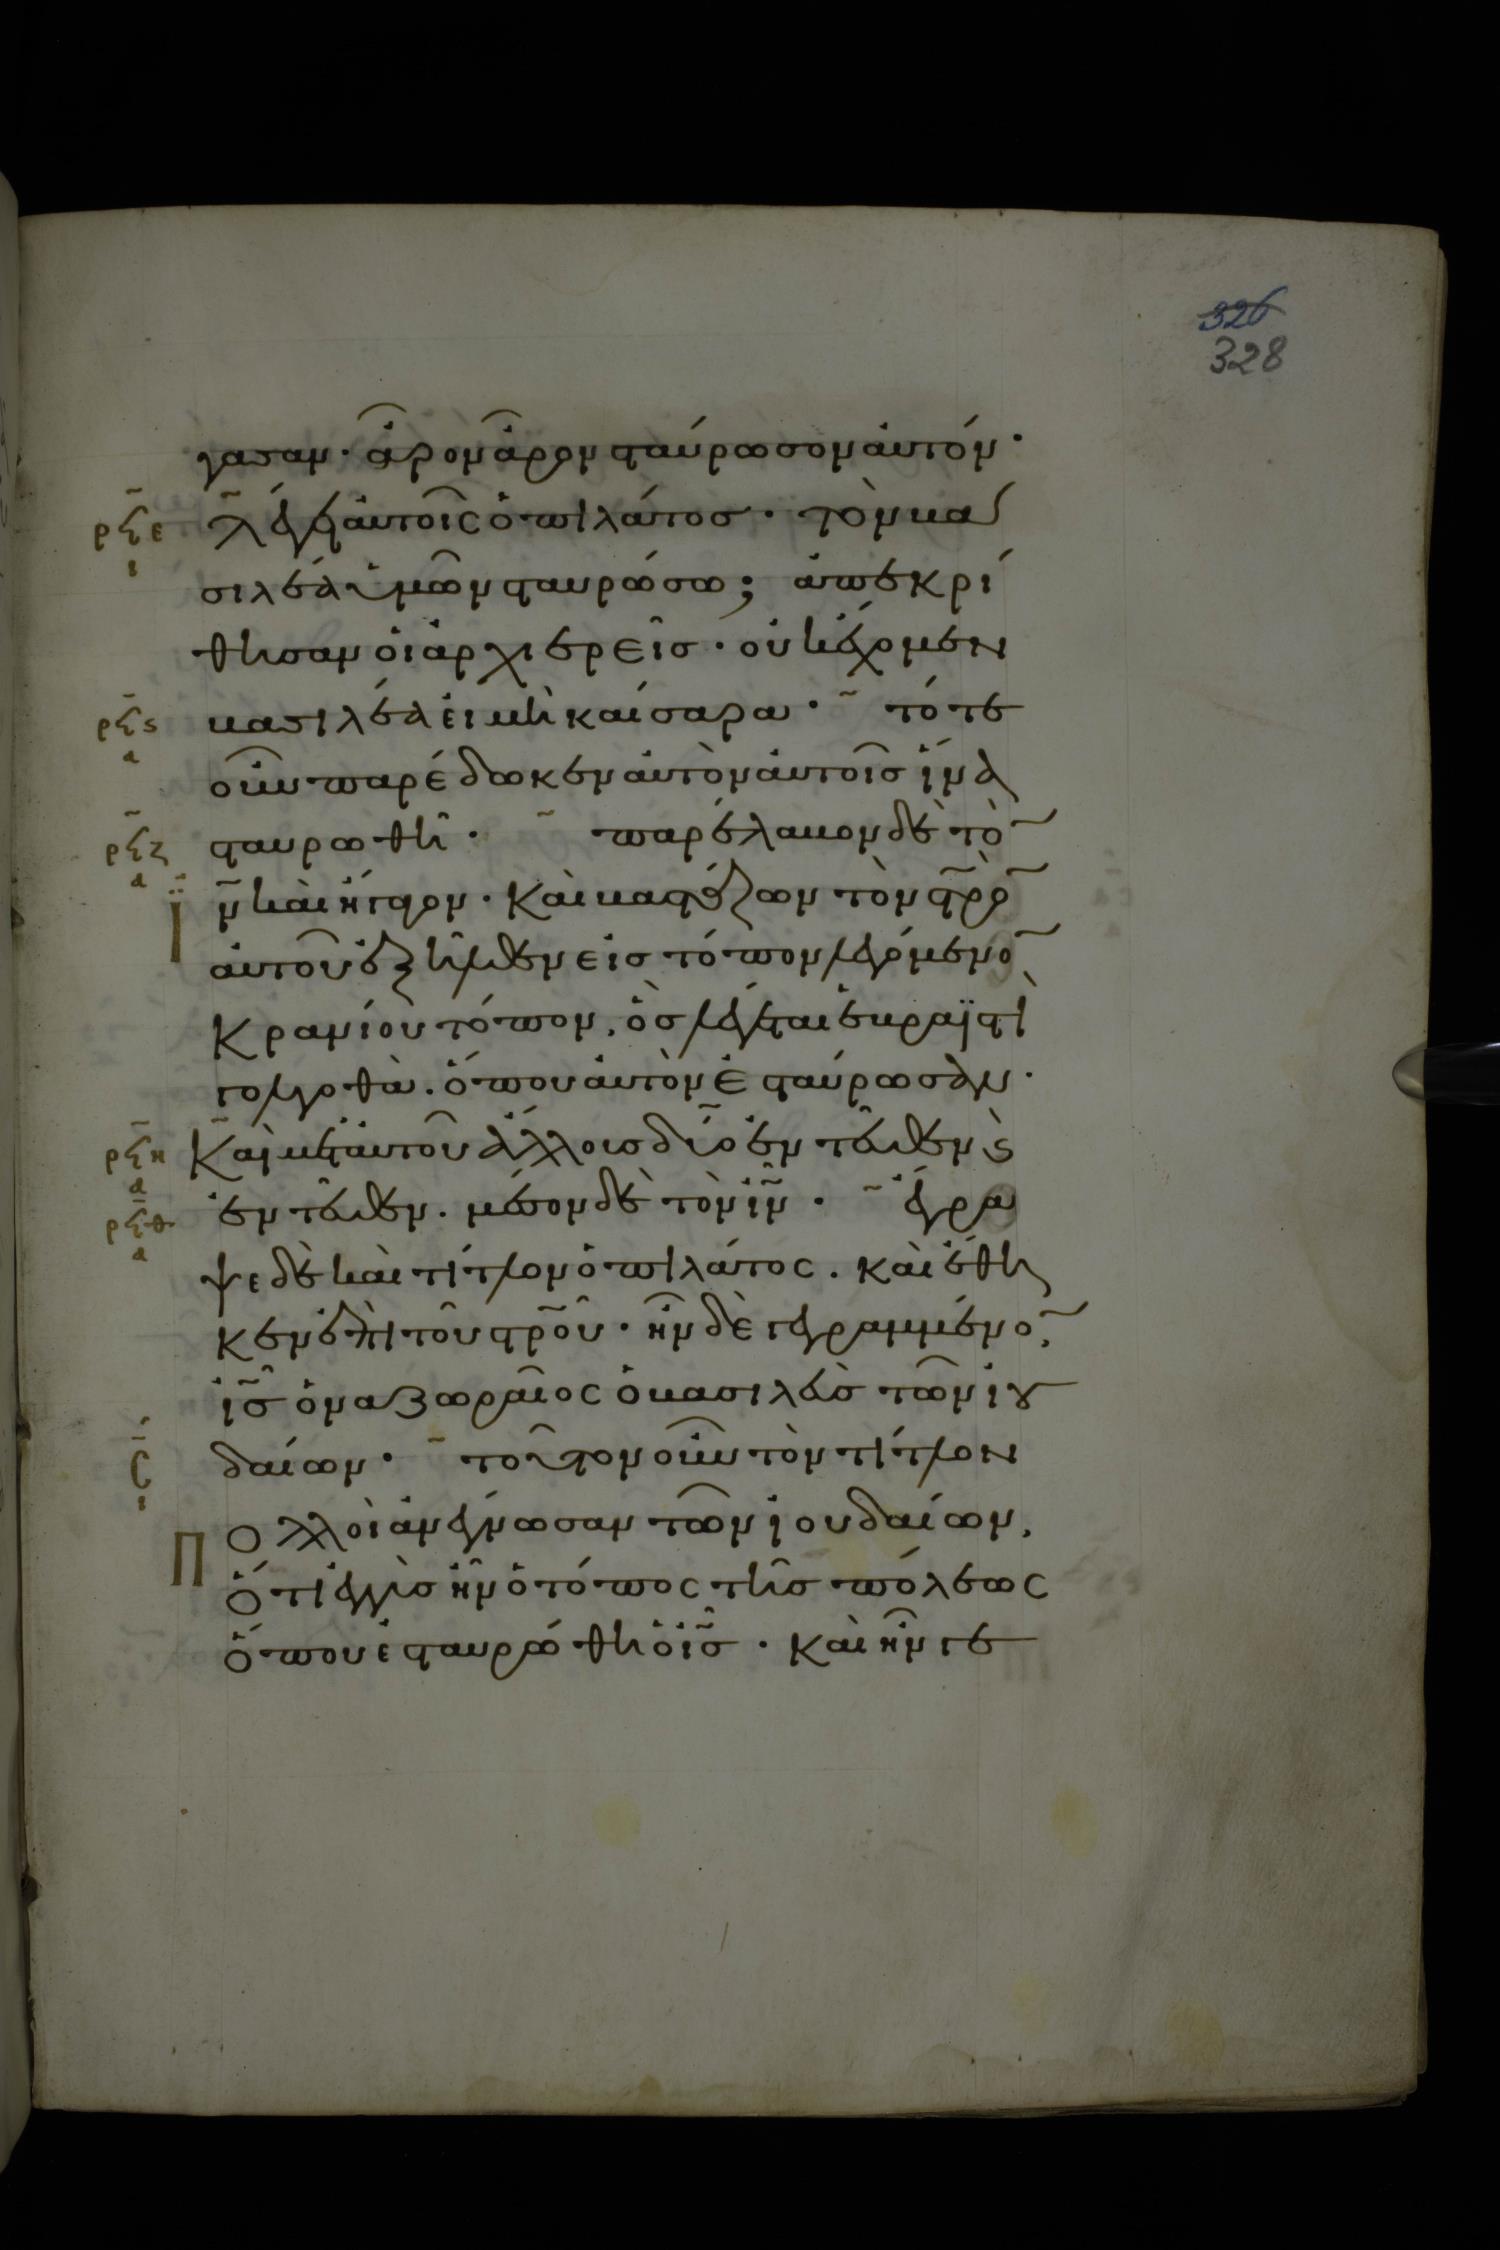 326
328
γασαν· ἆρον ἆρον σταύρωσον αὐτόν·
ρϟε ῑ λέγει αὐτοῖς ὁ πιλάτος· τὸν βα
σιλέα ὑμῶν σταυρώσω; ἀπεκρί
θησαν οἱ ἀρχιερεῖς· οὐκ ἔχομεν
ρϟς α βασιλέα εἰ μὴ καίσαρα· τότε
οὖν παρέδωκεν αὐτὸν αὐτοῖς ἵνα
ρϟζ α σταυρωθῆ· παρέλαβον δὲ τὸ
ϊν καὶ ἤγαγον· Καὶ βαστάζων τὸν στρὸ
αὐτοῦ ἐξῆλθεν εἰς τόπον λεγόμενο
Κρανίου τόπον, ὃς λέγεται ἑβραϊστὶ
γολγοθᾶ. ὅπου αὐτὸν ἐσταύρωσαν·
ρϟη α Καὶ μετ αὐτοῦ ἄλλους δύο ἐντεῦθεν ϗ
ρϟθ α ἐντεῦθεν. μέσον δὲ τὸν ιν· ἔγρα
ψε δὲ καὶ τίτλον ὁ πιλάτος. καὶ ἔθη
κεν ἐπὶ τοῦ στροῦ· ἦν δὲ γεγραμμένο,
ις ὁ ναζωραῖος ὁ βασιλεὺς τῶν ἰου
ς ι δαίων· τοῦτον οὖν τὸν τίτλον
Πολλοὶ ἀνέγνωσαν τῶν ἰουδαίων,
Ὅτι ἐγγὺς ἦν ὁ τόπος τῆς πόλεως
ὅπου ἐσταυρώθη ὁ ις· καὶ ἦν γε